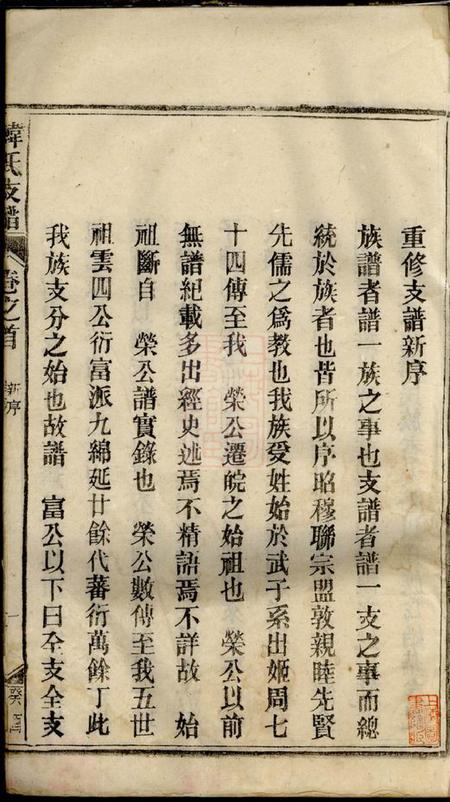 重修支譜新序
族譜者譜一族之事也支譜者譜一支之事而總
統於族者也皆所以序昭穆聯宗盟敦親睦先賢
先儒之爲教也我族受姓始於武子系出姬周七
十四傳至我 榮公遷皖之始祖也 榮公以前
無譜紀載多出經史述焉不精語焉不詳故 始
祖斷自 榮公譜實錄也 榮公數傳至我五世
祖雲四公衍富派九綿延廿餘代蕃衍萬餘丁此
我族支分之始也故譜 富公以下曰全支全支
韓氏支譜
卷之首
新序
一